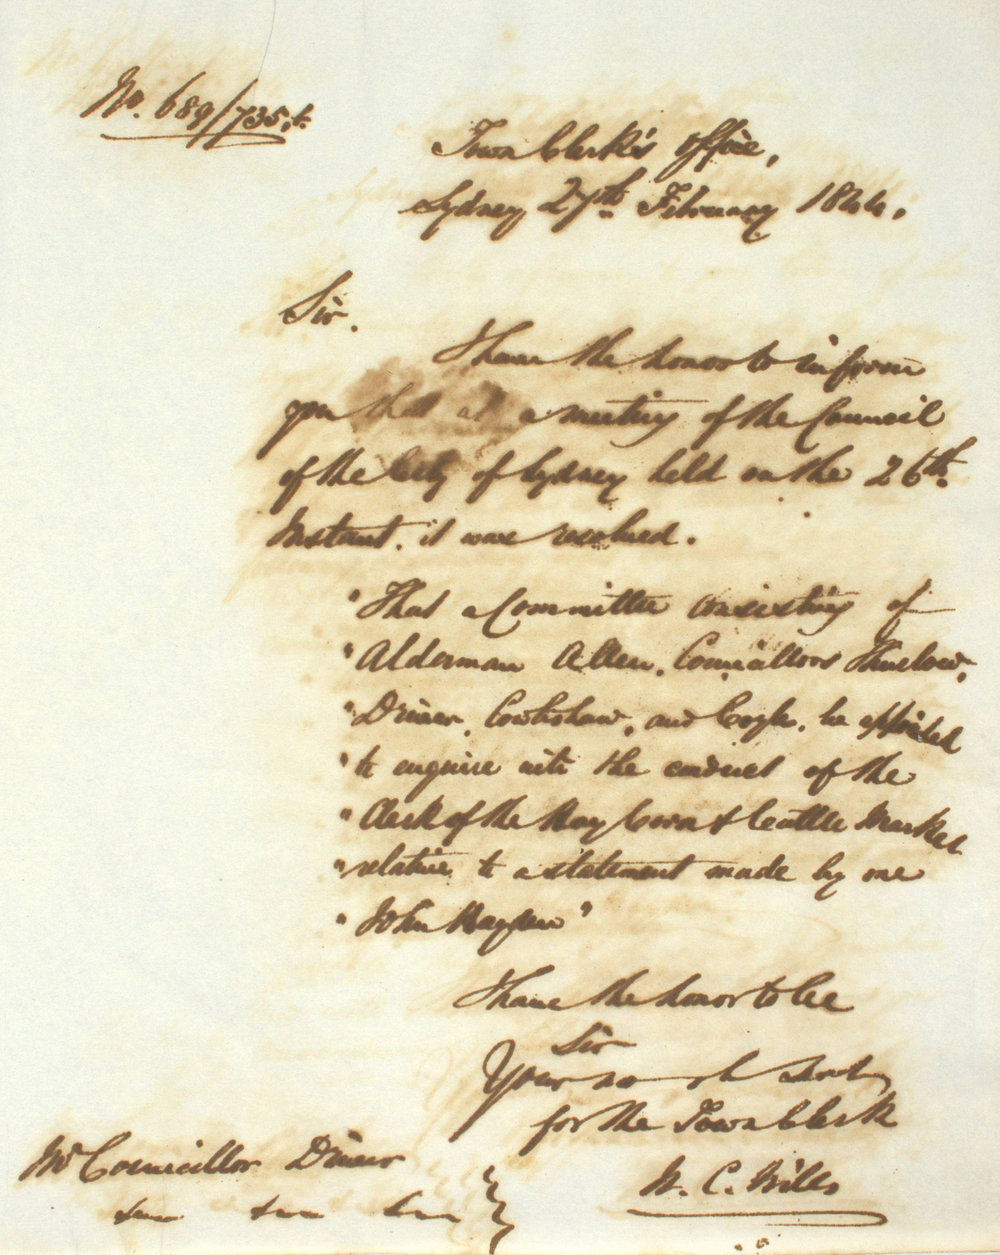 No. 689/735, t.
Town Clerk's Office,
Sydney 27th February 1844.
Sir.
I have the honor to inform
you that at a meeting of the Council
of the City of Sydney held on the 26th
Instant, it was resolved.
"That a Committee consisting of
"Alderman Allen, Councillors Thurlow,
"Driver, Cowlishaw, and Coyle, be appointed
"to enquire into the conduct of the
"Clerk of the Hay Corn & Cattle Market
"relative to a statement made by one
"John"
I have the honor to be
Sir
Your
for the Town Clerk
W. C. Wills
Mr Councillor Driver